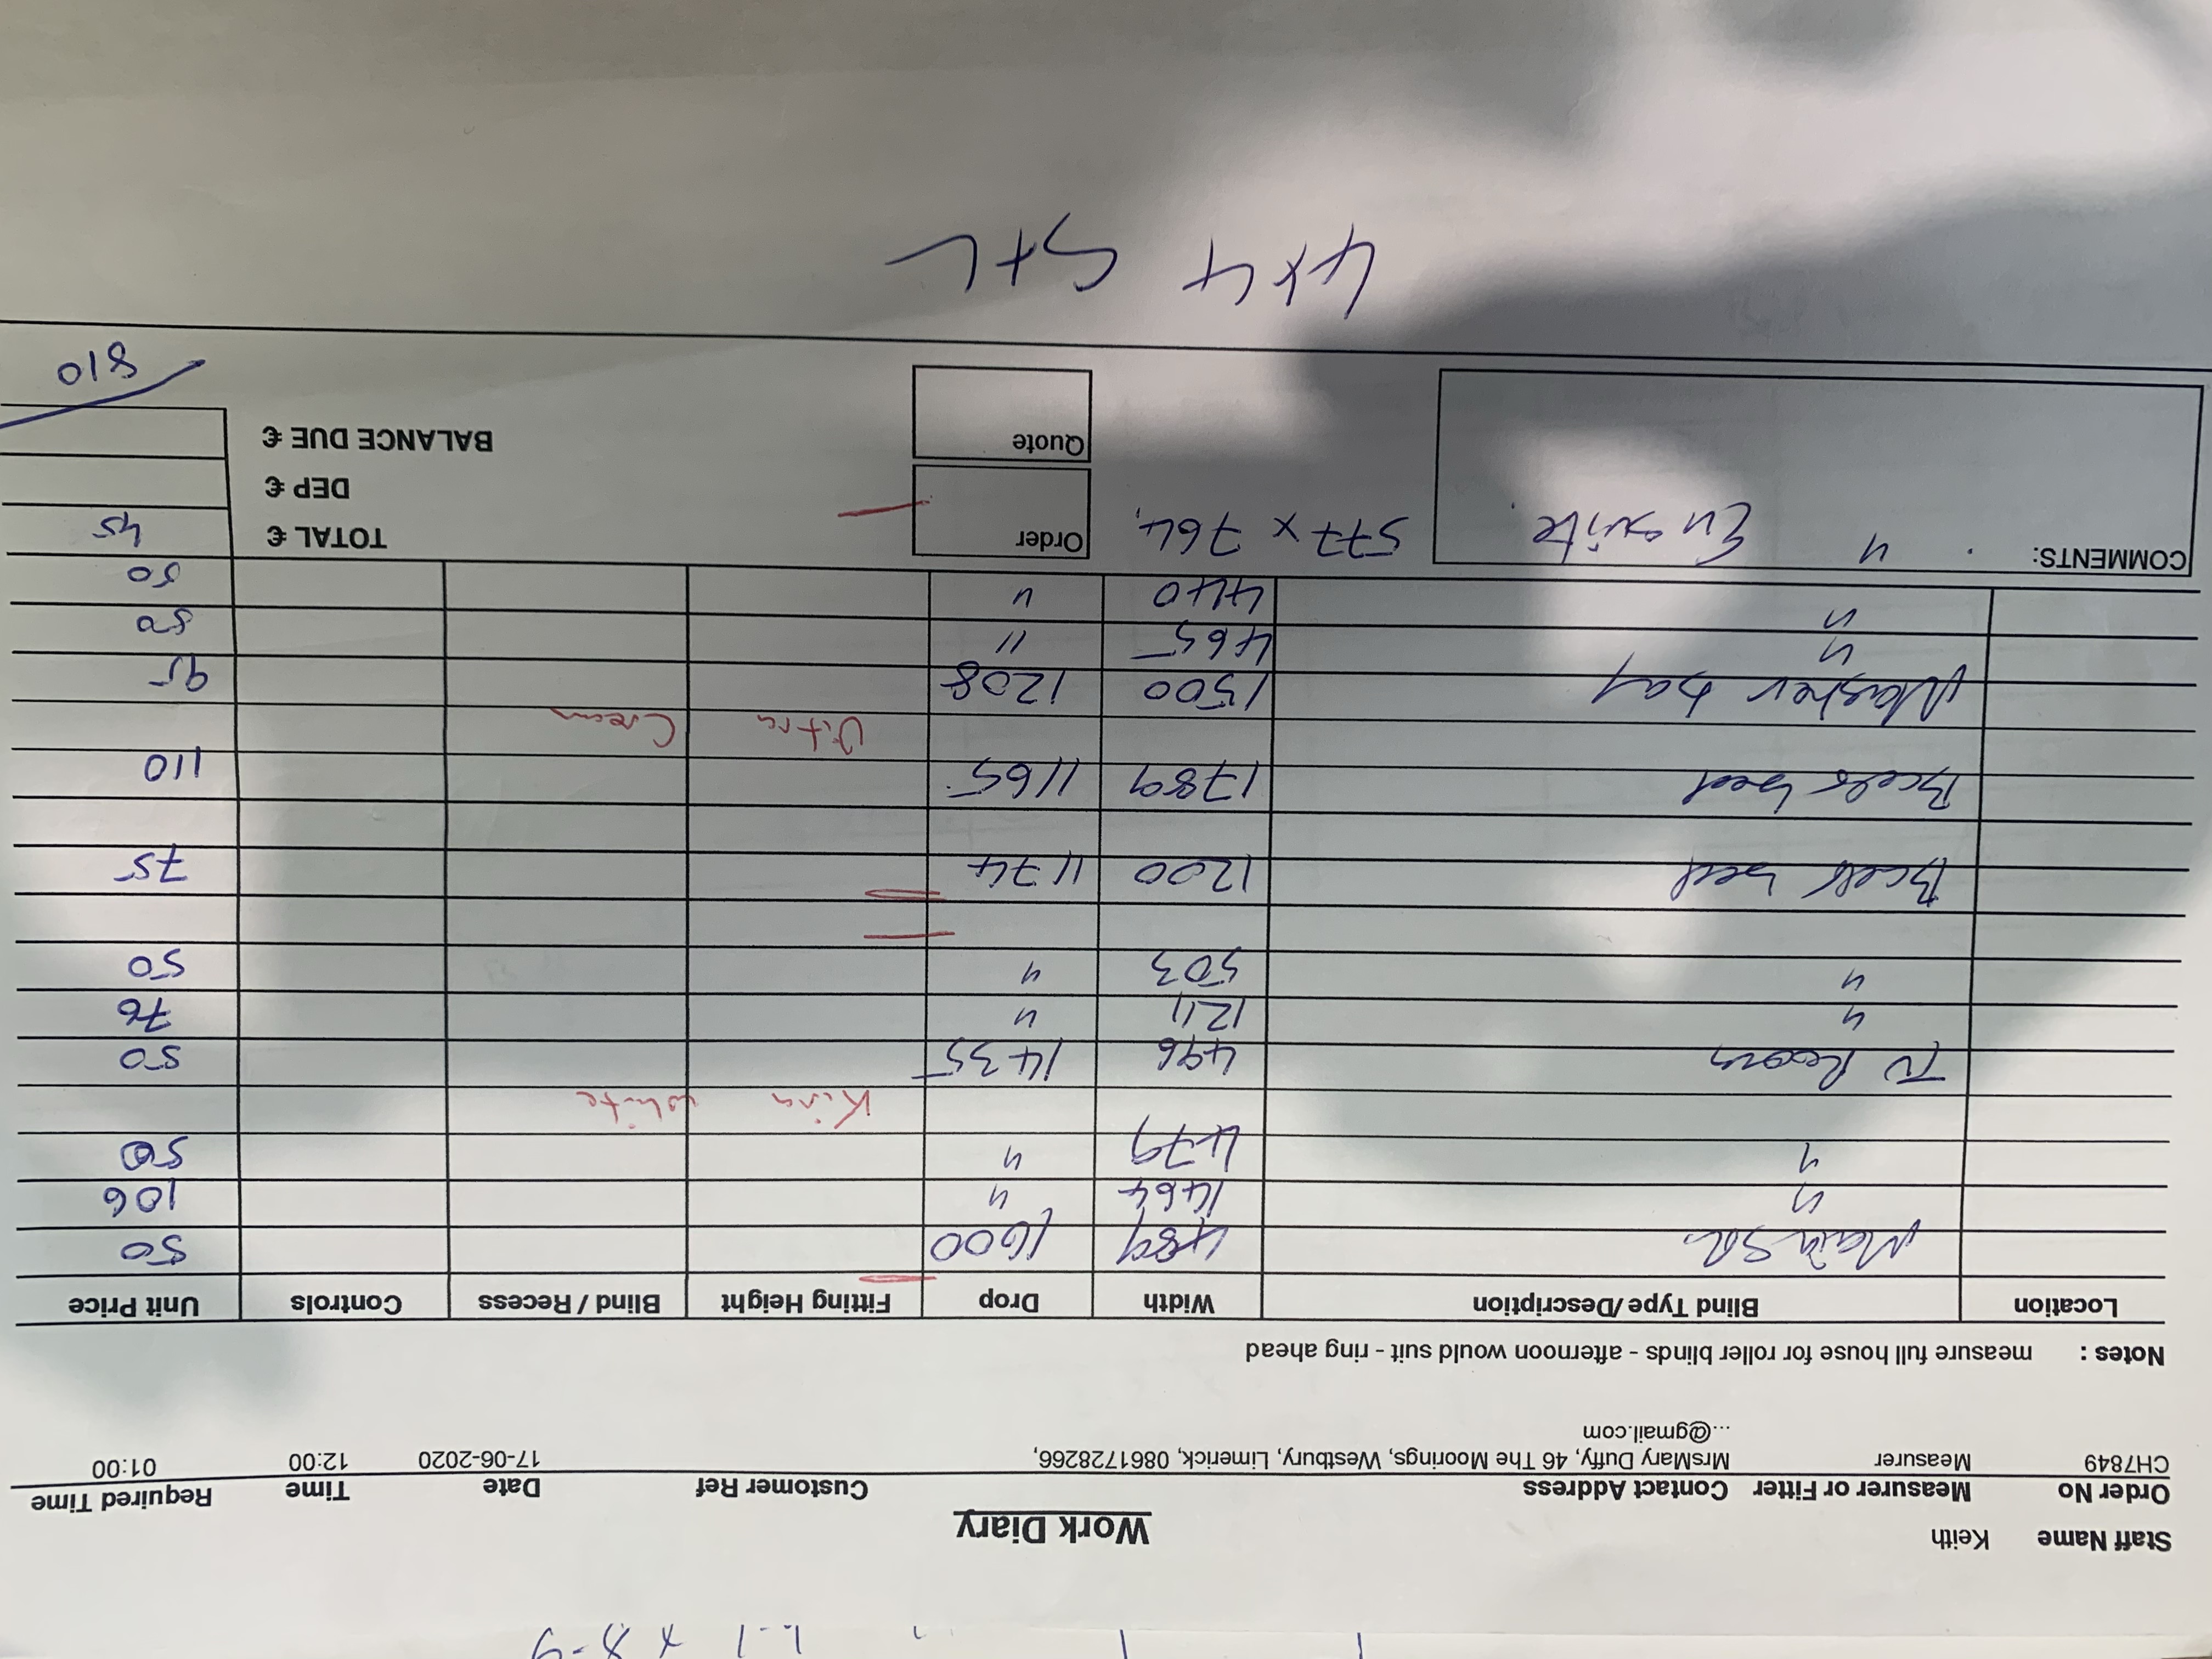 Staff Name Keith
Work Diary
Order No Measurer or Fitter Contact Address Customer Ref Date Time Required Time
CH7849 Measurer MrsMary Duffy, 46 The Moorings, Westbury, Limerick, 0861728266, 17-06-2020 12:00 01:00
...@gmail.com
Notes : measure full house for roller blinds - afternoon would suit - ring ahead
Location Blind Type/Description Width Drop Fitting Height Blind / Recess Controls Unit Price
Main 489 1600 50
" 1464 " 106
" 479 " 50
Kira white
TV Room 496 1435 50
" 1211 " 76
" 503 " 50
Back bed 1200 1174 75
Back bed 1789 1165 110
Vitra Cream
Master bay 1500 1208 95
" 465 " 50
" 440 " 50
COMMENTS: " En suite. 577 x 764. Order TOTAL € 45
DEP €
Quote BALANCE DUE €
810
4x4 S+L